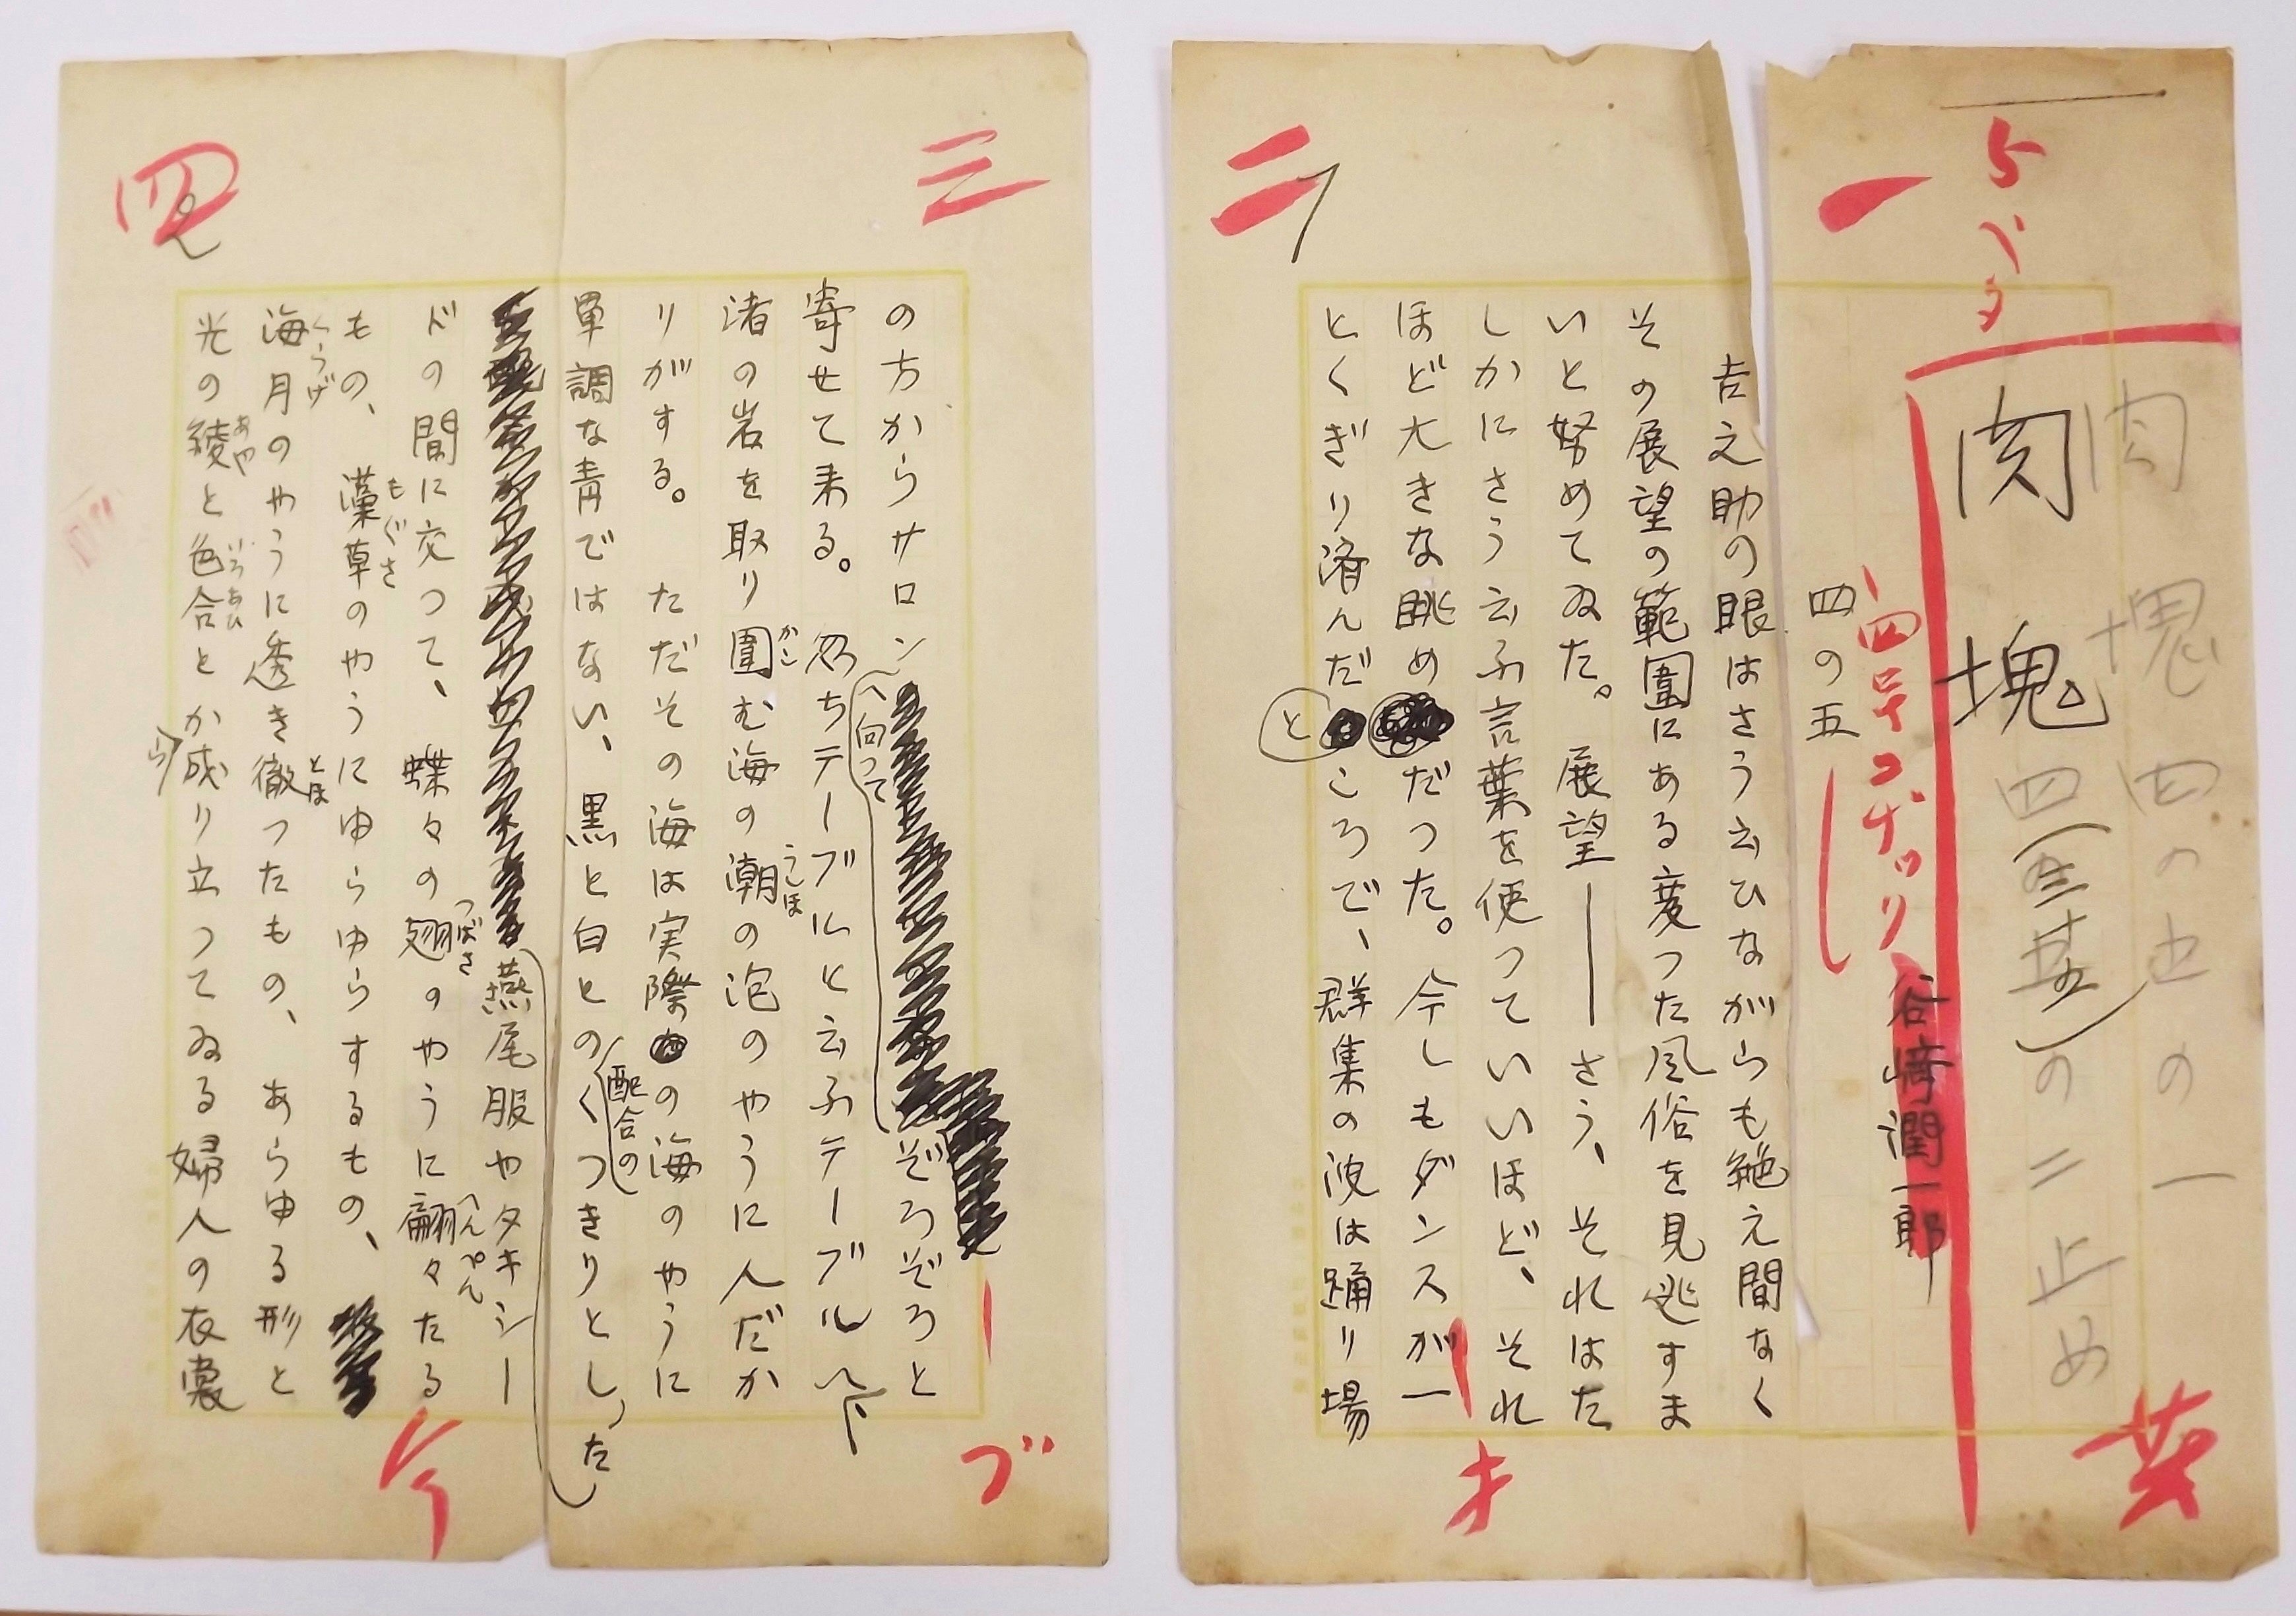 5パタ
肉塊四の五の一
肉塊
四
の二止め
英
一
四号ゴヂック
谷崎潤一郎
四の五
吉之助の眼はさう云ひながらも絶え間なく
その展望の範圍にある変つた風俗を見逃すま
いと努めてゐた。展望――さう、それはた
しかにさう云ふ言葉を使つていいほど、それ
ほど大きな眺めだつた。今しもダンスが一
とくぎり済んだところで、群集の波は踊り場
二
オ
三
ブ
の方からサロンへ向つてぞろぞろと
寄せて来る。忽ちテーブルと云ふテーブルは、
渚の岩を取り圍む海の潮の泡のやうに人だか
かこ
うしほ
りがする。ただその海は実際の海のやうに
単調な青ではない、黒と白との配合のくつきりとした
燕尾服やタキシー
ドの間に交つて、蝶々の翅のやうに翩々たる
つばさ
へんぺん
もの、藻草のやうにゆらゆらするもの、
もぐさ
海月のやうに透き徹つたもの、あらゆる形と
くらげ
とほ
光の綾と色合とから成り立つてゐる婦人の衣裳
あや
いろあひ
四
ケ